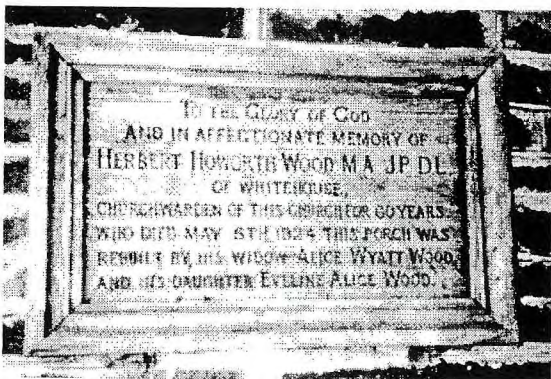 TO THE GLORY OF GOD
AND IN AFFECTIONATE MEMORY OF
HERBERT HOWORTH WOOD M.A. J.P. D.L.
OF WHITEHOUSE,
CHURCHWARDEN OF THIS CHURCH FOR 60 YEARS
WHO DIED MAY 6TH 1924 THIS PORCH WAS
REBUILT BY HIS WIDOW ALICE WYATT WOOD,
AND HIS DAUGHTER EVELINE ALICE WOOD.